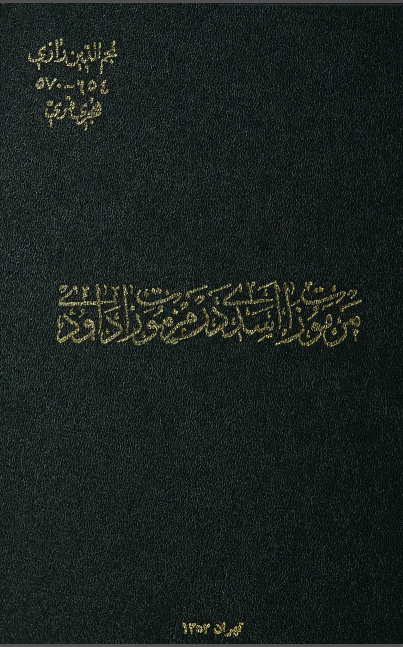 نجم الدین رازی
۵۷۰-۶۵۴
هجری قمری
مرموزات اسدی در مزمورات داودی
تهران ۱۳۵۲